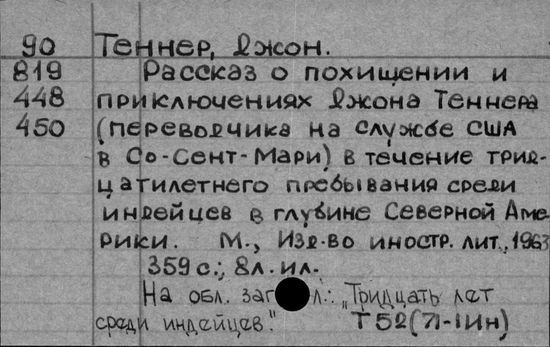 90 Теннер, Джон.
819 Рассказ о похищении и
448 приключениях Джона Теннера
450 (переводчика на службе США
в Со-Сент-Мари) в течение трид-
цатилетнего пребывания среди
индейцев в глубине Северной Аме-
рики. М., Изд-во иностр. лит., 1963
359 с.; 8 л. ил.
На обл. заг л.: "Тридцать лет
среди индейцев". Т52(71-1Ин)